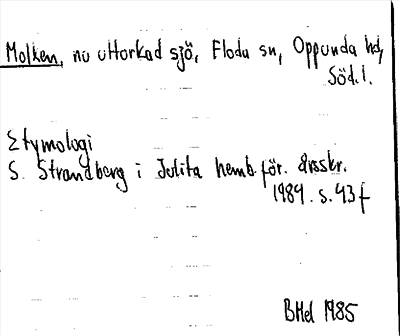 Molken, nu uttorkad sjö, Floda sn, Oppunda hd,
Söd.l.
Etymologi
S. Strandberg i Julita hemb.för. årsskr.
1984. s. 43 f
BHel 1985